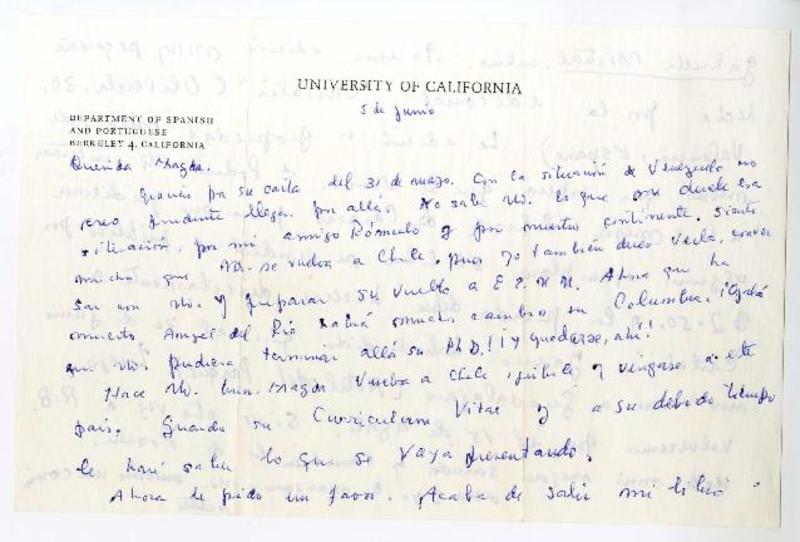 UNIVERSITY OF CALIFORNIA
5 de junio
DEPARTMENT OF SPANISH
AND PORTUGUESE
BERKELEY 4, CALIFORNIA
Querida Magda.
Gracias por su carta del 31 de mayo. Con la situación de Venezuela no
creo prudente llegar por allá. No sabe Ud. lo que me duele esa
situación, por mi amigo Rómulo y por nuestro continente. Siento
mucho que Ud. se vuelva a Chile, pues yo también deseo verla, conver
sar con Ud. y preparar su vuelta a E.E.U.U. Ahora que ha
muerto Angel del Río habrá mucho cambio en Columbia. ¡Ojalá
que Ud. pudiera terminar allá su Ph.D.!! ¡Y quedarse, ahí!
Hace Ud. bien. Magda Vuelva a Chile y véngase a este
país. Guardo su Curriculum Vitae y a su debido tiempo
le haré saber lo que se vaya presentando.
Ahora le pido un favor. Acaba de salir mi libro